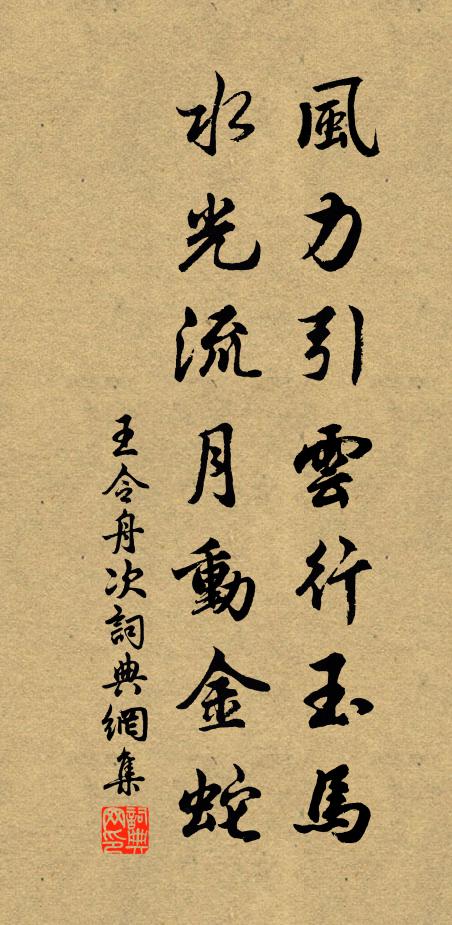 風力引雲行玉馬
水光流月動金蛇
王令舟次詞典網集
詞典網印